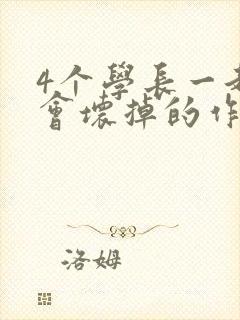 4个學長一
會壞掉的作
洛姆